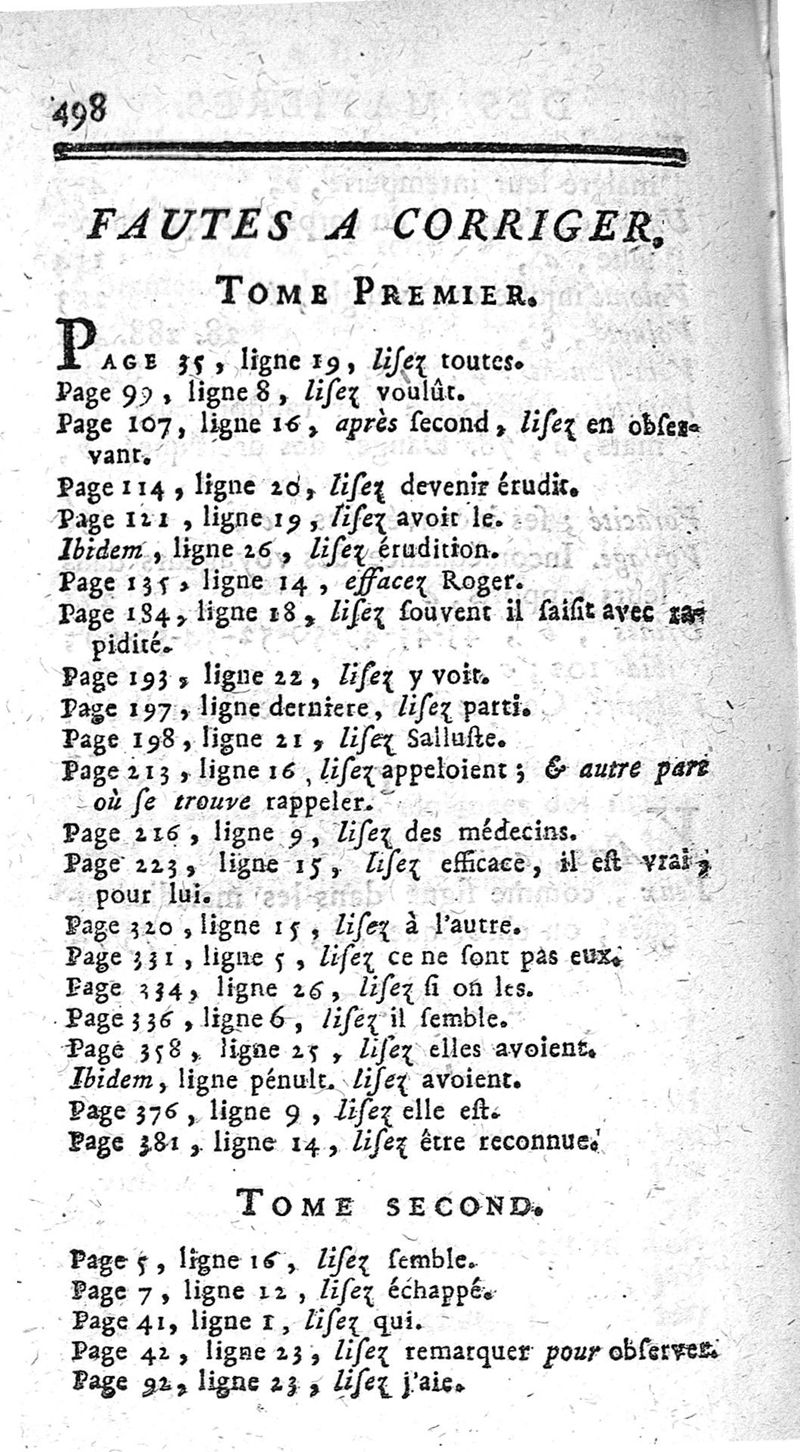 498
FAUTES A CORRIGER.
TOME PREMIER.
PAGE 35, ligne 19, liſez toutes.
Page 99, ligne 8, liſez voulût.
Page 107, ligne 16, après ſecond, liſez en obſer-
vant.
Page 114, ligne 20, liſez devenir érudit.
Page 121, ligne 19, liſez avoit le.
Ibidem, ligne 26, liſez érudition.
Page 135, ligne 14, effacez Roger.
Page 184, ligne 18, liſez ſouvent il ſaiſit avec ra-
pidité.
Page 193, ligne 22, liſez y voit.
Page 197, ligne derniere, liſez parti.
Page 198, ligne 21, liſez Salluſte.
Page 213, ligne 16, liſez appeloient ; & autre part
où ſe trouve rappeler.
Page 216, ligne 9, liſez des médecins.
Page 223, ligne 15, liſez efficace, il eſt vrai,
pour lui.
Page 320, ligne 15, liſez à l'autre.
Page 331, ligne 5, liſez ce ne ſont pas eux.
Page 334, ligne 26, liſez ſi on les.
Page 336, ligne 6, liſez il ſemble.
Page 358, ligne 25, liſez elles avoient.
Ibidem, ligne pénult. liſez avoient.
Page 376, ligne 9, liſez elle eſt.
Page 381, ligne 14, liſez être reconnue.
TOME SECOND.
Page 5, ligne 16, liſez ſemble.
Page 7, ligne 12, liſez échappé.
Page 41, ligne 1, liſez qui.
Page 42, ligne 23, liſez remarquer pour obſerver.
Page 92, ligne 23, liſez j'aie.